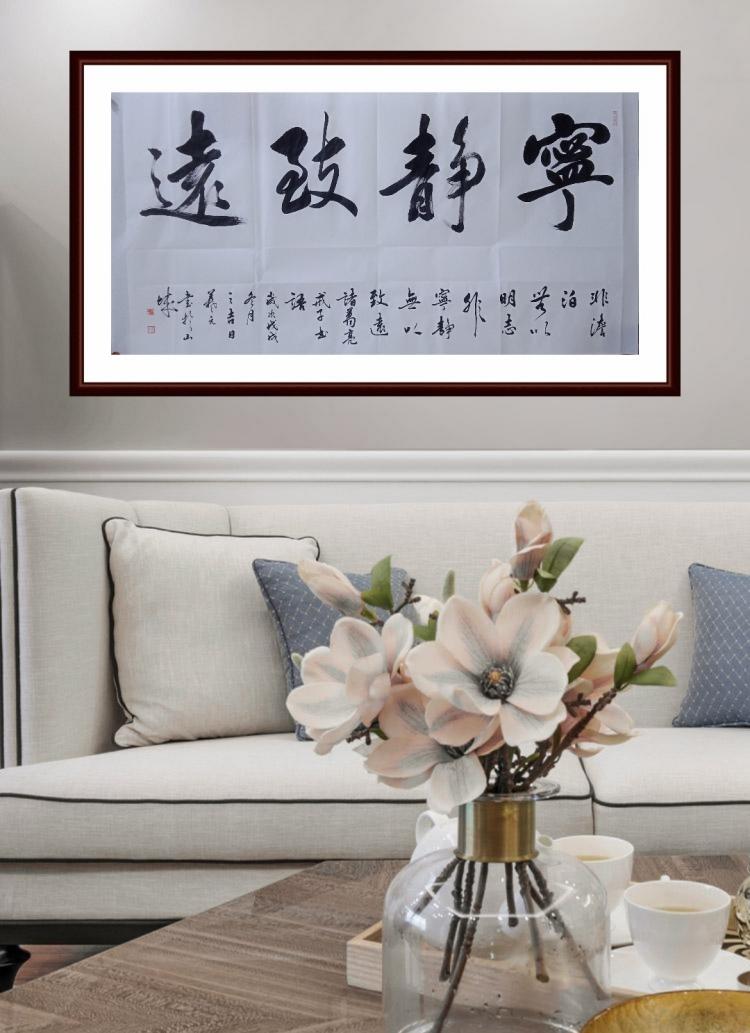 寧靜致遠
非澹
泊
無以
明志
非
寧靜
無以
致遠
諸葛亮
戒子書
語
歲次戊戌
冬月
之吉日
書於山
城